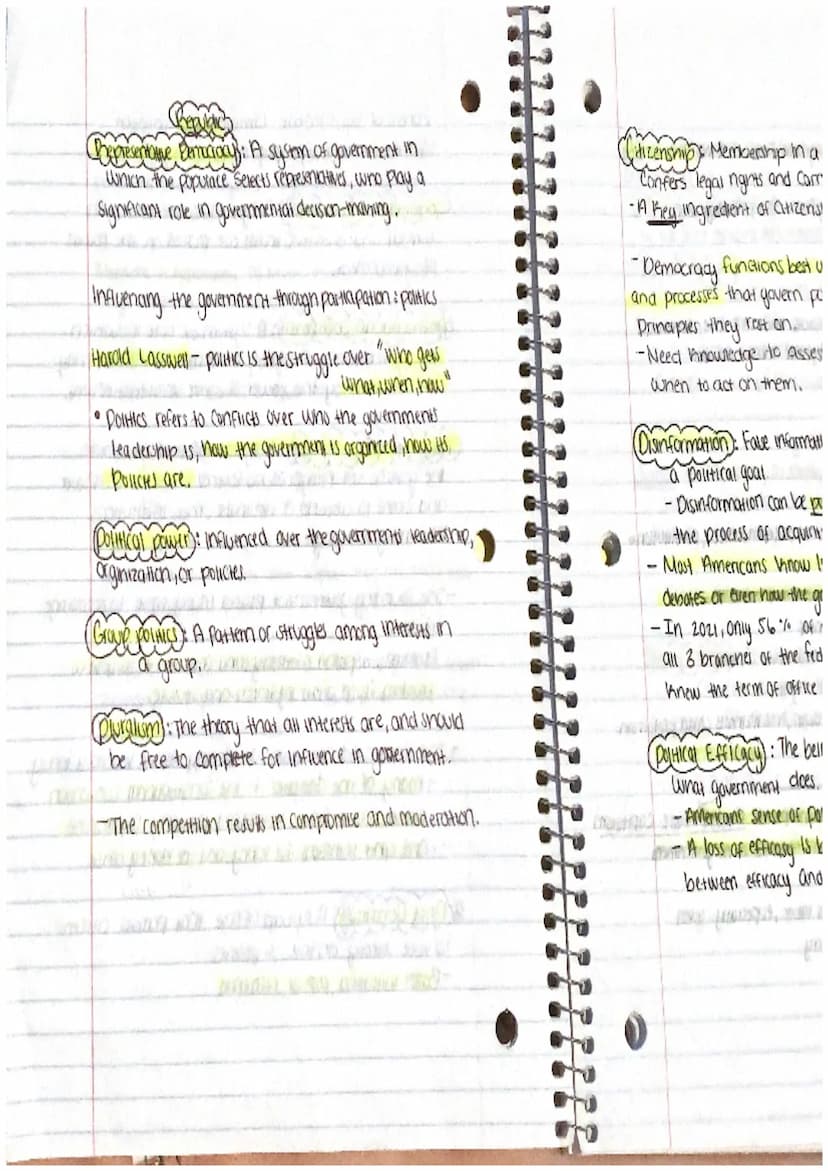 Republic
Representative Democracy: A system of government in
which the populace selects representatives, who play a
significant role in governmental decision-making.
Influencing the government through participation: politics
Harold Lasswell - politics is the struggle over "who gets
what, when, how"
• Politics refers to conflicts over who the governments
leadership is, how the government is organized, how its
policies are.
Political power: Influenced over the governments leadership,
orginization, or policies.
Group politics: A pattern of struggles among interests in
a group.
Pluralism: The theory that all interests are, and should
be free to complete for influence in government.
- The competition results in compromise and moderation.
Citizenship: Membership in a
confers legal rights and carr
- A key ingredient of citizens
- Democracy functions best w
and processes that govern po
principles they rest on.
- Need knowledge to asses
when to act on them.
Disinformation: False informati
a political goal
- Disinformation can be
the process of acquiri
- Most Americans know l
debates or even how the go
- In 2021, only 56% of
all 3 branches of the fed
knew the term of office
Political Efficacy: The beli
what government does.
- Americans sense of po
- A loss of efficacy is
between efficacy and